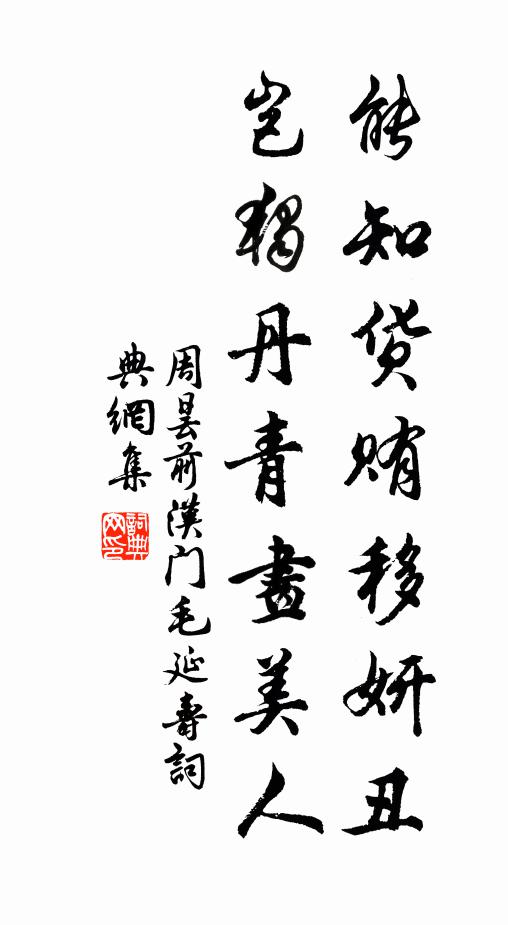 能知货贿移妍丑
岂独丹青畫美人
周昙前漢门毛延壽詞
典網集
詞典
网印